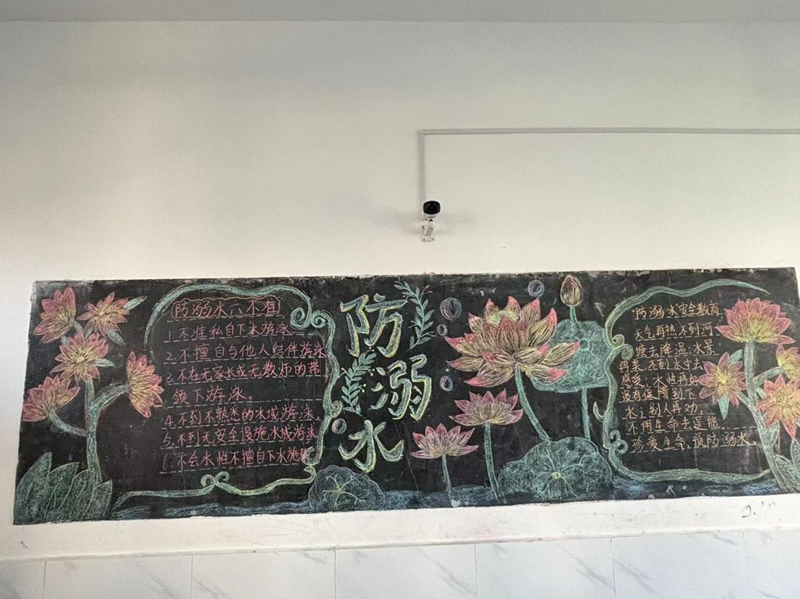 防溺水六不准
1.不准私自下水游泳
2.不擅自与他人结伴游泳
3.不在无家长或无教师的带
领下游泳.
4.不到不熟悉的水域游泳.
5.不到无安全设施水域游泳
6.不会水性不擅自下水施救
防溺水
防溺水安全教育
天气再热不到河
塘去降温,水景
再美.不到水中去
感受.水性再好
没有保障别下
水;别人再劝,
不用生命去逞能
珍爱生命,谨防溺水